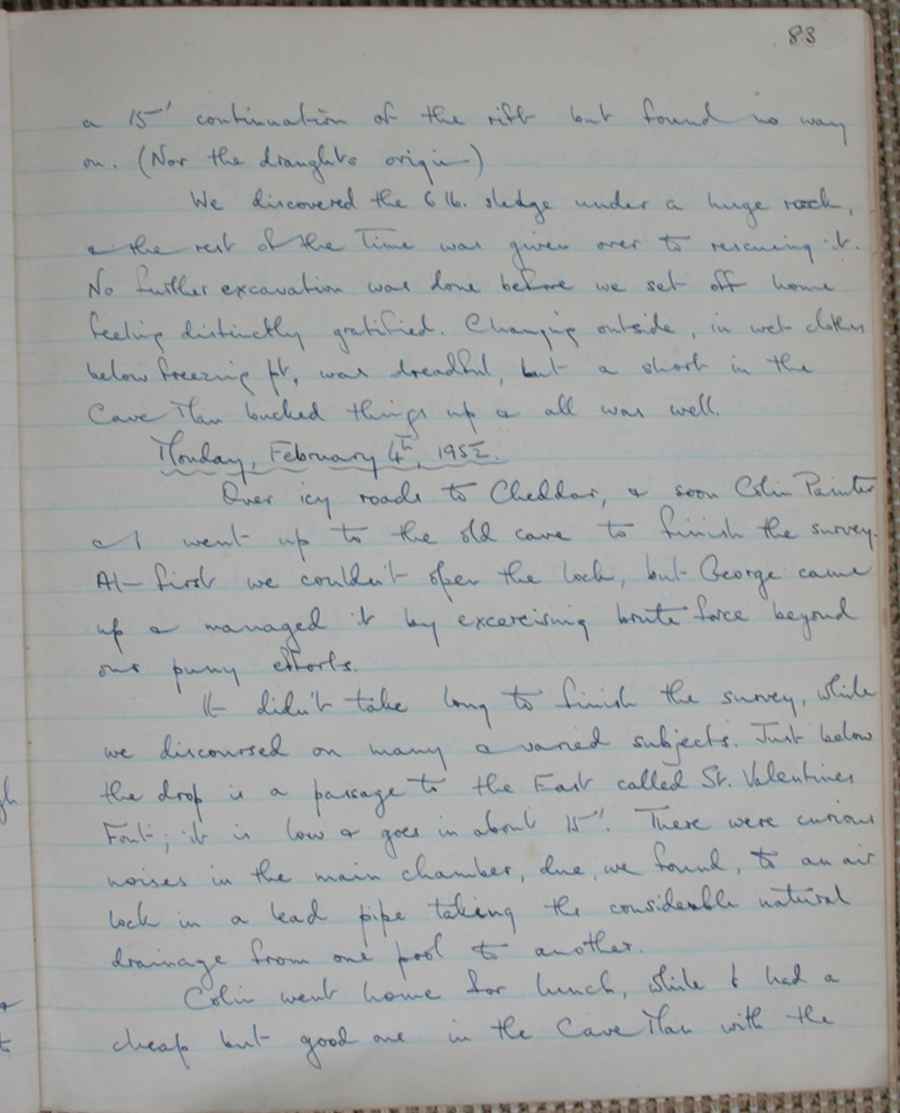 83
a 15' continuation of the rift but found no way
on. (Nor the draughts origin)
We discovered the 6 lb. sledge under a huge rock,
& the rest of the time was given over to rescuing it.
No further excavation was done before we set off home
feeling distinctly gratified. Changing outside, in wet clothes
below freezing pt, was dreadful, but a short in the
Cave Man bucked things up & all was well.
Monday, February 4th, 1952.
Over icy roads to Cheddar, & soon Colin Painter
& I went up to the old cave to finish the survey.
At first we couldn't open the lock, but George came
up & managed it by excercising brute force beyond
our puny efforts.
It didn't take long to finish the survey, while
we discoursed on many & varied subjects. Just below
the drop is a passage to the East called St. Valentines
Font; it is low & goes in about 15'. There were curious
noises in the main chamber, due, we found, to an air
lock in a lead pipe taking the considerable natural
drainage from one pool to another.
Colin went home for lunch, while I had a
cheap but good one in the Cave Man with the